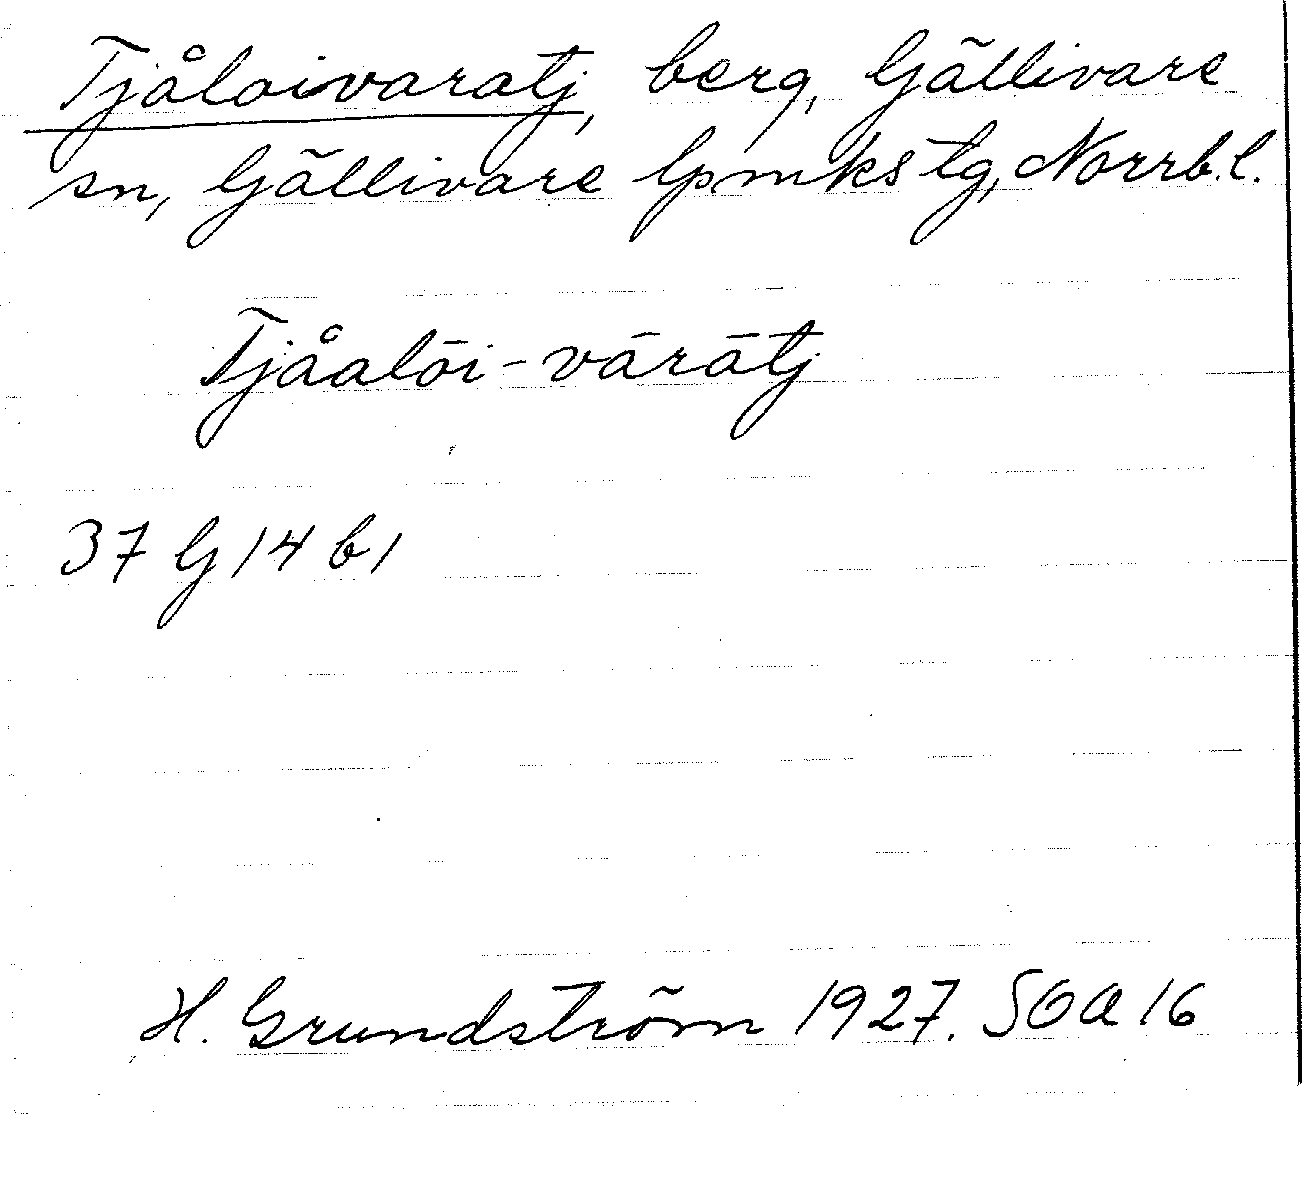 Tjåloivaratj, berg, Gällivare
sn, Gällivare lpmkstg, Norrb.l.
Tjåalōi-vārātj
37 G 14 b 1
H. Grundström 1927. SOA 16